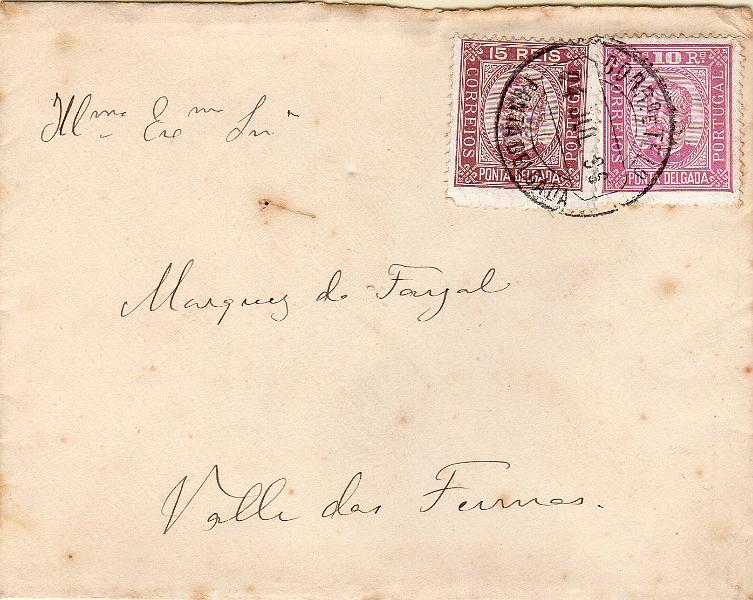 15 REIS
CORREIOS
PORTUGAL
PONTA DELGADA
10 Rs
CORREIOS
PORTUGAL
PONTA DELGADA
PONTA DELGADA
Illmo Exmo Snr
Marquez do Fayal
Valle das Furnas.